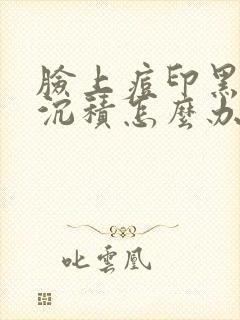 臉上痘印黑
沉積怎麼办
叱雲凰